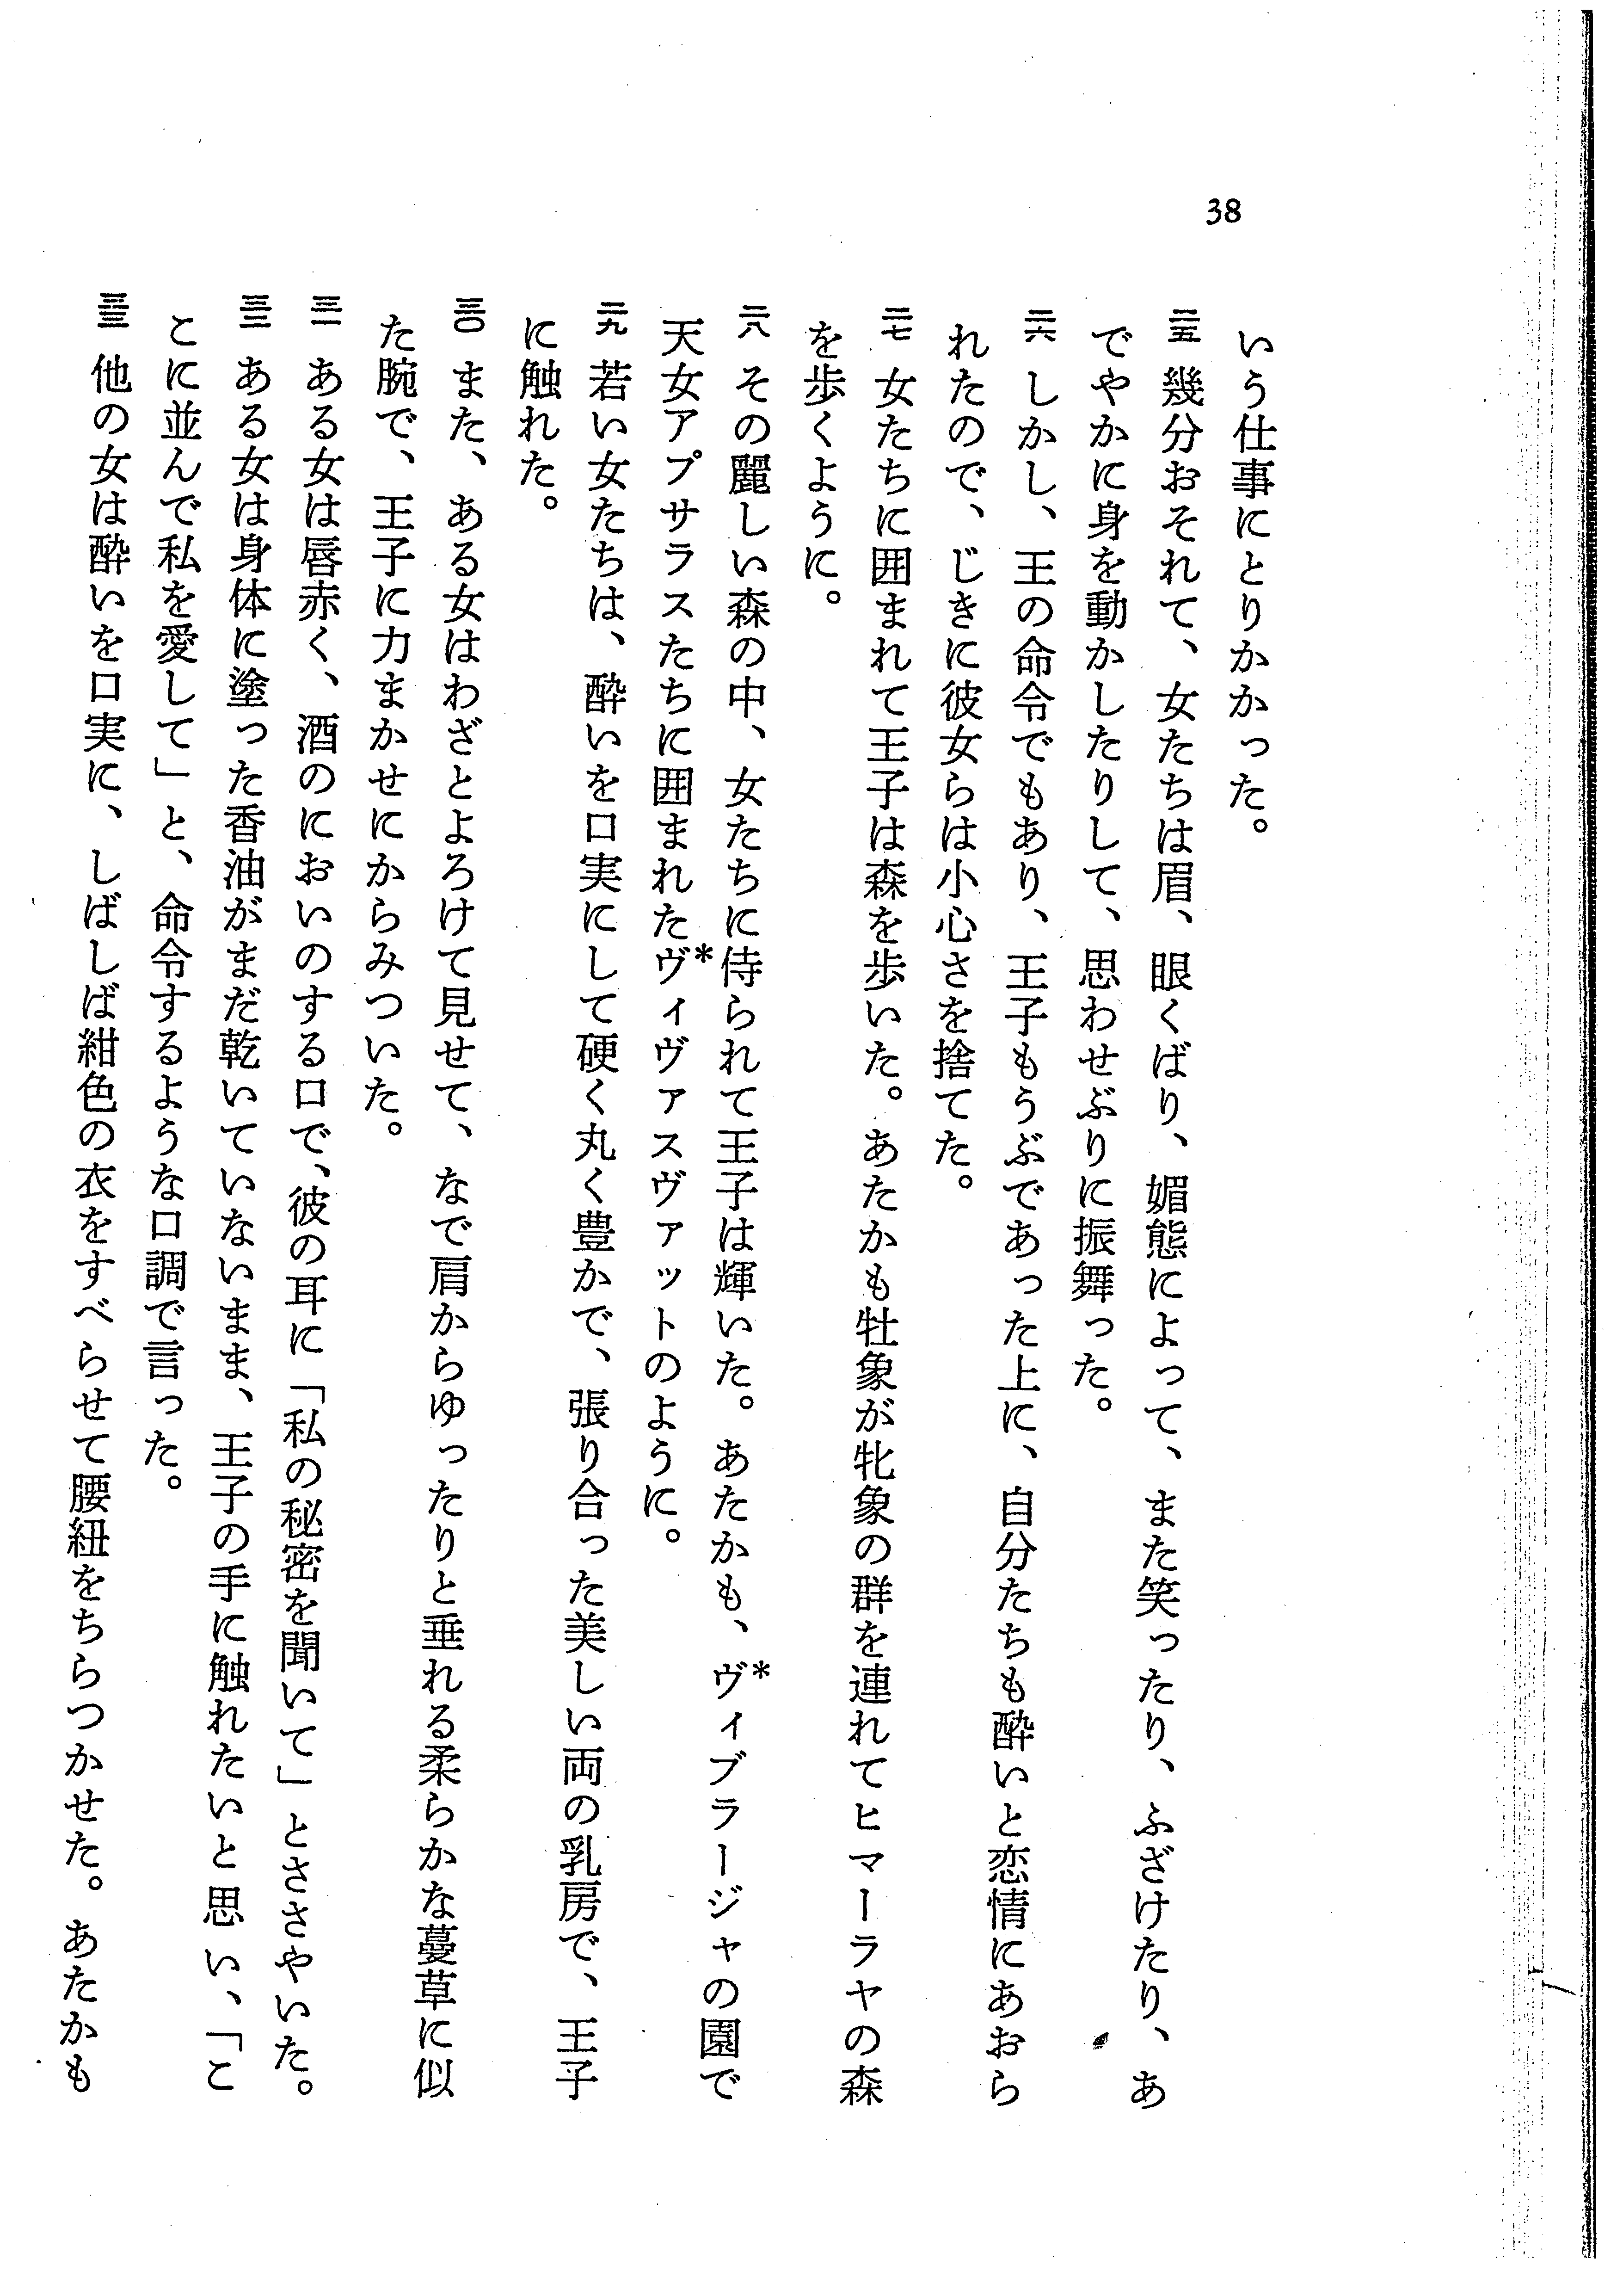 38
いう仕事にとりかかった。
二五 幾分おそれて、女たちは眉、眼くばり、媚態によって、また笑ったり、ふざけたり、あ
でやかに身を動かしたりして、思わせぶりに振舞った。
二六 しかし、王の命令でもあり、王子もうぶであった上に、自分たちも酔いと恋情にあおら
れたので、じきに彼女らは小心さを捨てた。
二七 女たちに囲まれて王子は森を歩いた。あたかも牡象が牝象の群を連れてヒマーラヤの森
を歩くように。
二八 その麗しい森の中、女たちに侍られて王子は輝いた。あたかも、*ヴィブラージャの園で
天女アプサラスたちに囲まれた*ヴィヴァスヴァットのように。
二九 若い女たちは、酔いを口実にして硬く丸く豊かで、張り合った美しい両の乳房で、王子
に触れた。
三〇 また、ある女はわざとよろけて見せて、なで肩からゆったりと垂れる柔らかな蔓草に似
た腕で、王子に力まかせにからみついた。
三一 ある女は唇赤く、酒のにおいのする口で、彼の耳に「私の秘密を聞いて」とささやいた。
三二 ある女は身体に塗った香油がまだ乾いていないまま、王子の手に触れたいと思い、「こ
こに並んで私を愛して」と、命令するような口調で言った。
三三 他の女は酔いを口実に、しばしば紺色の衣をすべらせて腰紐をちらつかせた。あたかも